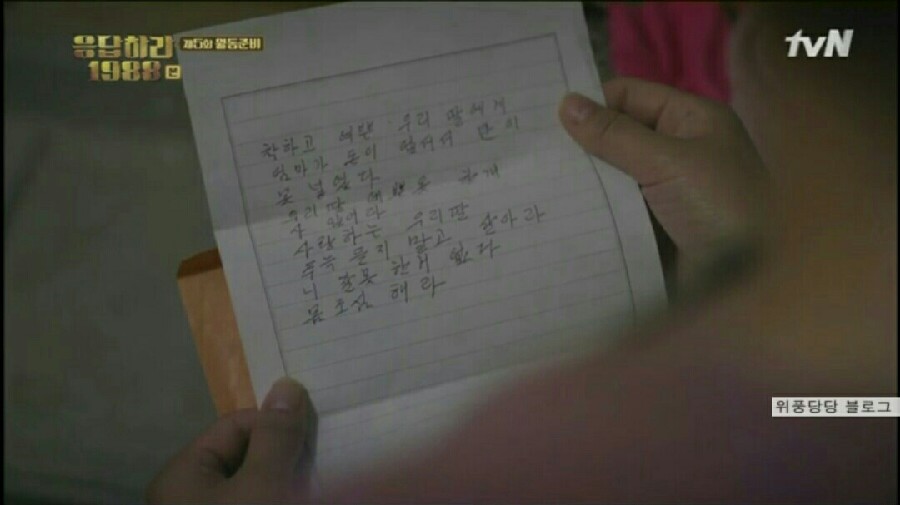 응답하라
1988
제5회 월동준비
tvN
착하고 예쁜 우리 딸에게
엄마가 돈이 없어서 만이
못 넣었다
우리딸 해 못 하게
사랑하는 우리딸
주눅 들지 말고 살아라
니 잘못 한거 없다
몸 조심 해라
위풍당당 블로그